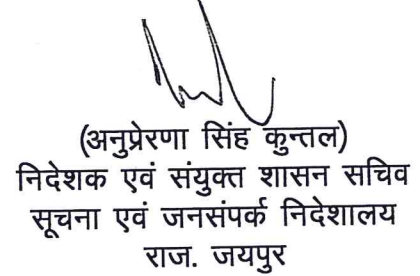 (अनुप्रेरणा सिंह कुन्तल)
निदेशक एवं संयुक्त शासन सचिव
सूचना एवं जनसंपर्क निदेशालय
राज. जयपुर